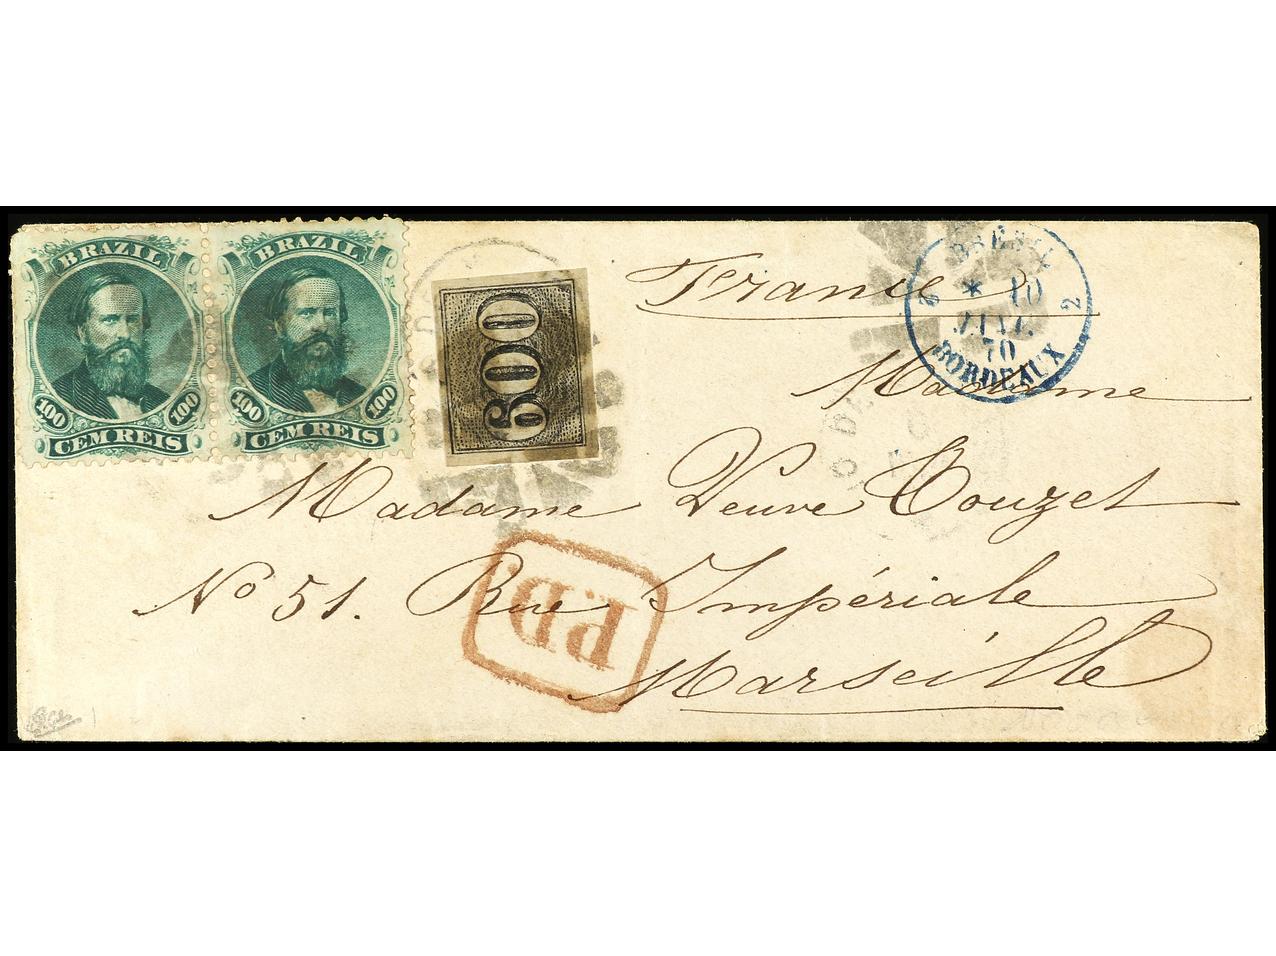 BRAZIL
100 100
CEM REIS
BRAZIL
100 100
CEM REIS
600
France
BRESIL
2 * 10 2
JANV.
70
BORDEAUX
Madame
Madame Veuve Couzet
No 51. Rue Impériale
P.D.
Marseille